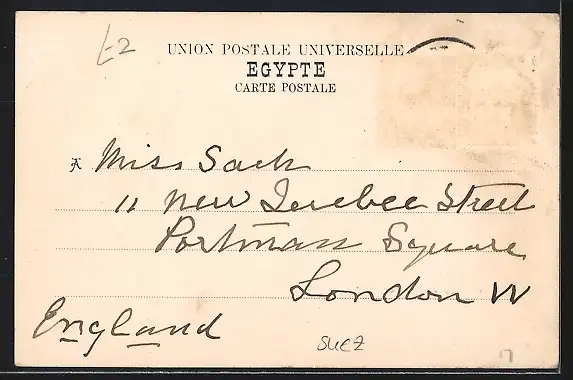 £-2
UNION POSTALE UNIVERSELLE
EGYPTE
CARTE POSTALE
A Miss Sach
11 New Quebec Street
Portman Square
London W
England
Suez